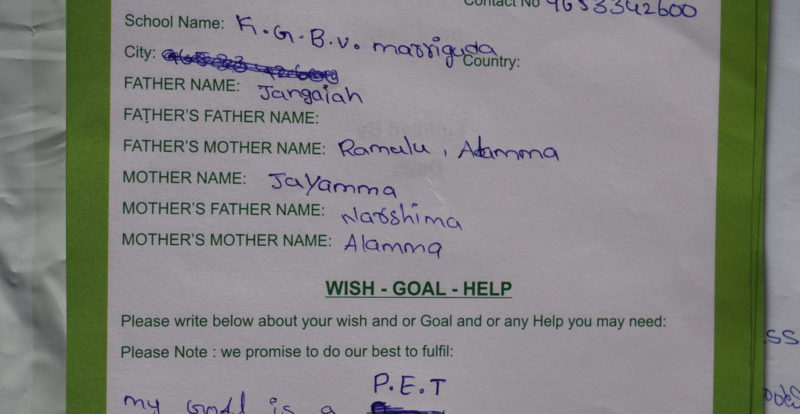 Contact No 9653342600
School Name: K.G.B.V. marriguda
City: Country:
FATHER NAME: Jangaiah
FATHER'S FATHER NAME:
FATHER'S MOTHER NAME: Ramulu, Alamma
MOTHER NAME: Jayamma
MOTHER'S FATHER NAME: Narshima
MOTHER'S MOTHER NAME: Alamma
WISH - GOAL - HELP
Please write below about your wish and or Goal and or any Help you may need:
Please Note : we promise to do our best to fulfil:
P.E.T
my Goal is a